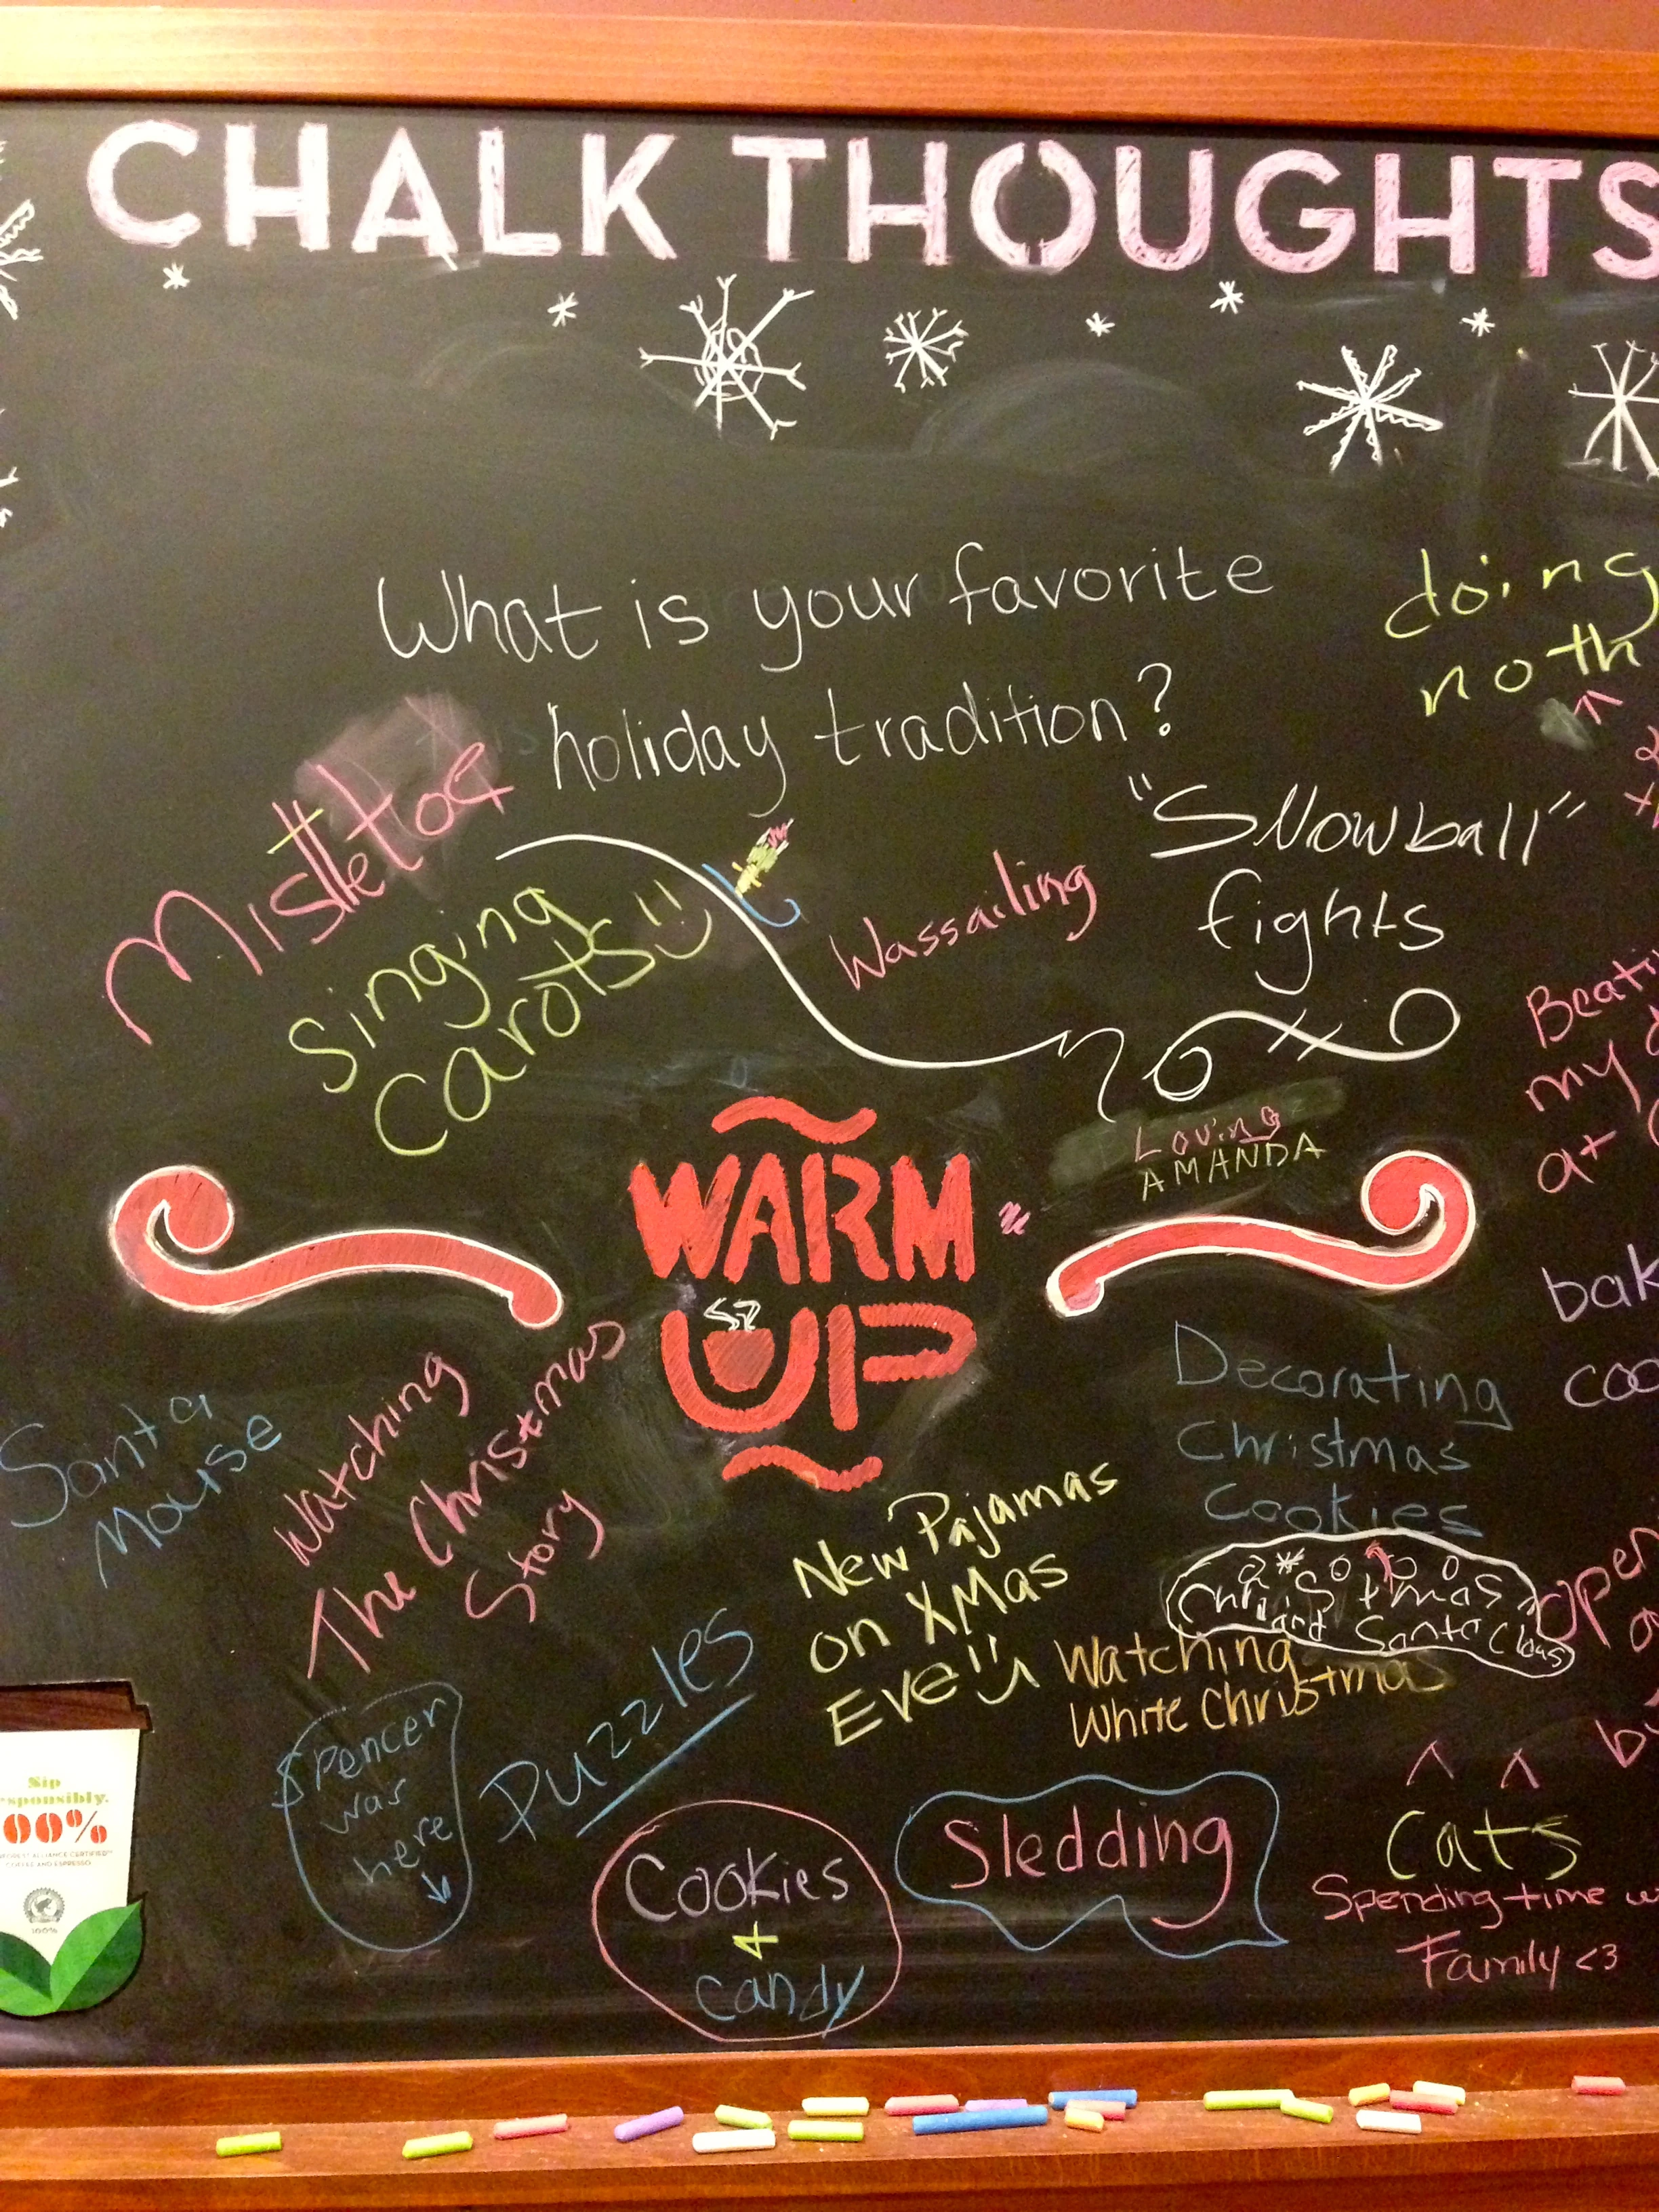 CHALK THOUGHTS
What is your favorite
holiday tradition?
doing
noth
Mistletoe
Singing
Carots
Wassailing
"Snowball"
fights
Beati
my
at
Loving
AMANDA
WARM
UP
bak
coo
Decorating
Christmas
Cookies
Christmas
and Santa Claus
Santa
Mouse
Watching
The Christmas
Story
New Pajamas
on XMas
Eve
Watching
White Christmas
open
by
Puzzles
Spencer
was
here
Cookies
+
candy
Sledding
Cats
Spending time w
Family <3
Sip
sponsibly.
00%
FOREST ALLIANCE CERTIFIED™
COFFEE AND ESPRESSO
100%